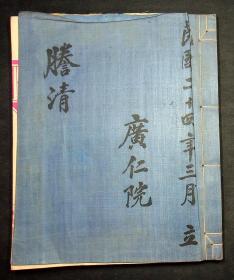 民國二十四年三月 立
廣仁院
謄清